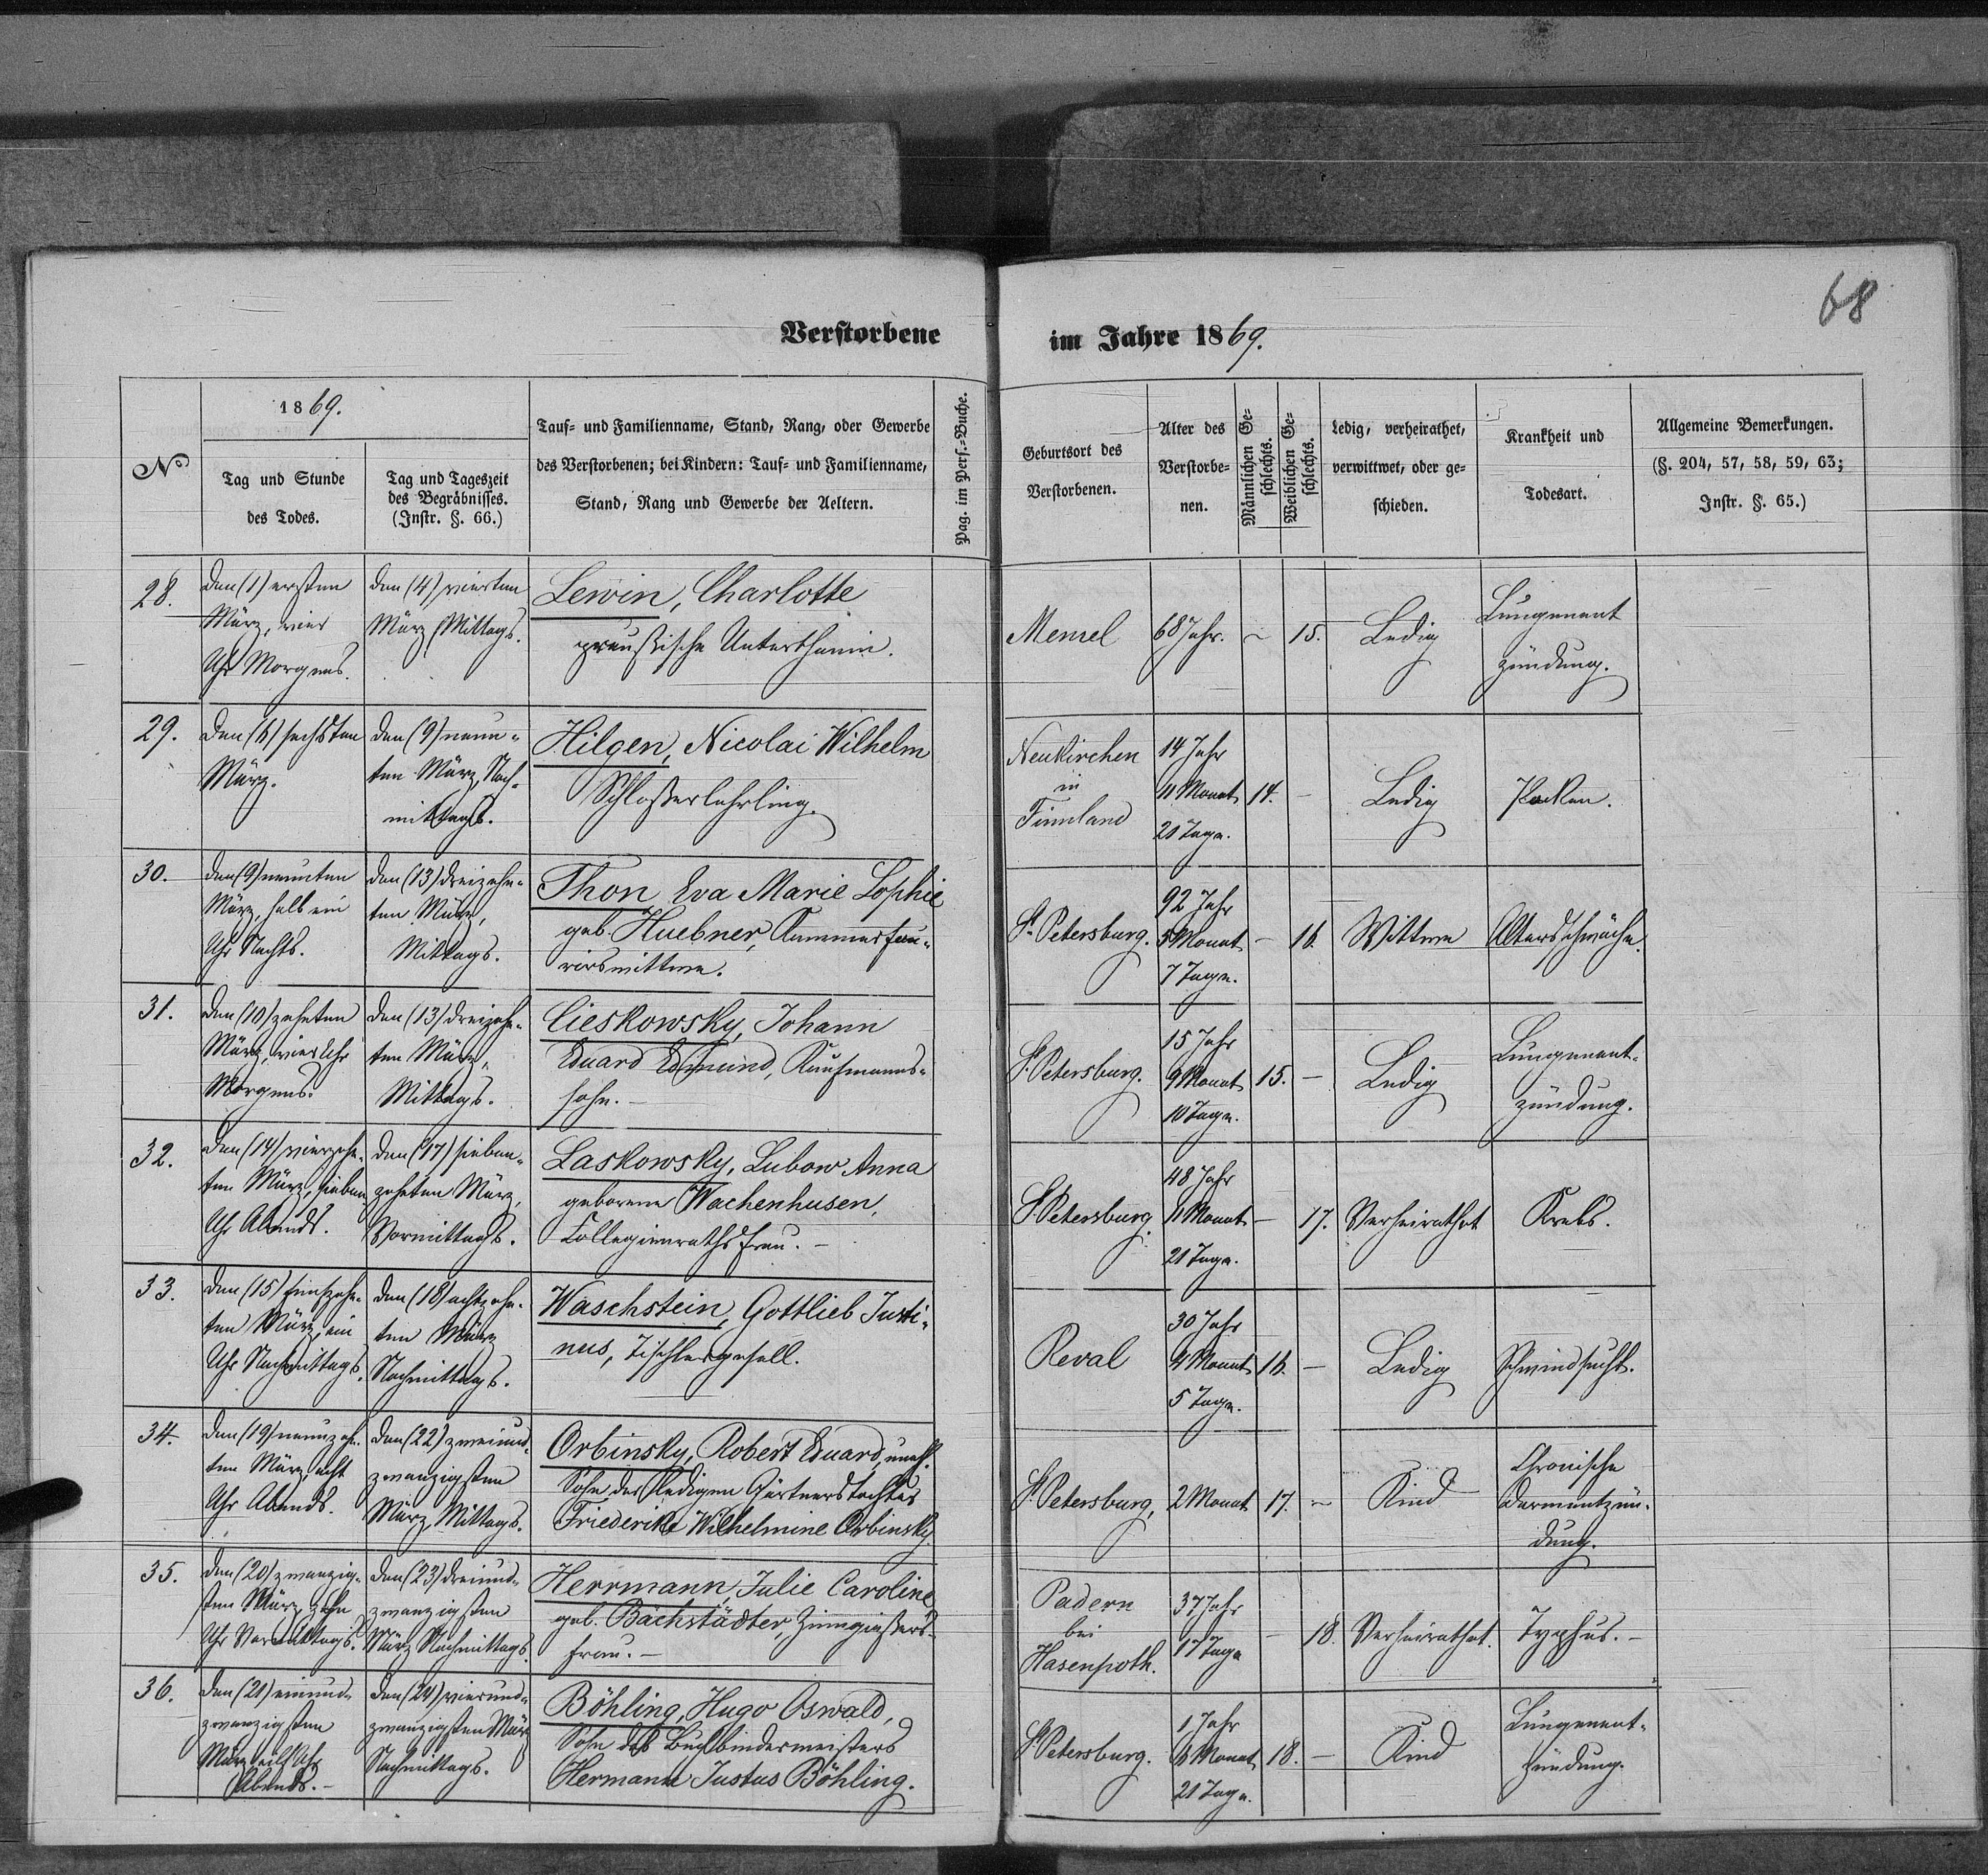 68
Verstorbene im Jahre 1869.
№
1869.
Tag und Stunde
des Todes.
Tag und Tageszeit
des Begräbnisses.
(Instr. §. 66.)
Tauf- und Familienname, Stand, Rang, oder Gewerbe
des Verstorbenen; bei Kindern: Tauf- und Familienname,
Stand, Rang und Gewerbe der Aeltern.
Pag. im Pers.-Buche.
Geburtsort des
Verstorbenen.
Alter des
Verstorbe-
nen.
Männlichen Ge-
schlechts.
Weiblichen Ge-
schlechts.
Ledig, verheirathet,
verwittwet, oder ge-
schieden.
Krankheit und
Todesart.
Allgemeine Bemerkungen.
(§. 204, 57, 58, 59, 63;
Instr. §. 65.)
28.
den (1) ersten
März, vier
Uhr Morgens.
den (4) vierten
März Mittags.
Lewin, Charlotte
preußische Unterthanin.
Memel
68 Jahr.
-
15.
Ledig
Lungenent
zündung.
29.
den (6) sechsten
März.
den (9) neun-
ten März, Nach-
mittags.
Hilgen, Nicolai Wilhelm
Schlosserlehrling.
Neukirchen
in
Finnland
14 Jahr
11 Monat
21 Tage.
14.
-
Ledig
Pocken.
30.
den (9) neunten
März, halb ein
Uhr Nachts.
den (13) dreizehn-
ten März,
Mittags.
Thon, Eva Marie Sophie
geb. Huebner, Kammerfou-
rierswittwe.
St. Petersburg.
92 Jahr
5 Monat
7 Tage.
-
16.
Wittwe
Altersschwäche.
31.
den (10) zehnten
März, vier Uhr
Morgens.
den (13) dreizehn-
ten März,
Mittags.
Cieskowsky, Johann
Eduard Edmund, Kaufmanns-
sohn.-
St. Petersburg.
15 Jahr
9 Monat
10 Tage.
15.
-
Ledig
Lungenent-
zündung.
32.
den (14) vierzehn-
ten März, sieben
Uhr Abends.
den (17) sieben-
zehnten März,
Vormittags.
Laskowsky, Lubow Anna
geborene Wachenhusen,
Collegienraths Frau.-
St. Petersburg.
48 Jahr
11 Monat
21 Tage.
-
17.
Verheirathet
Krebs.
33.
den (15) fünfzehn-
ten März, ein
Uhr Nachmittags.
den (18) achtzehn-
ten März
Nachmittags.
Waschstein, Gottlieb Justi-
nus, Tischlergesell.
Reval
30 Jahr
4 Monat
5 Tage.
16.
-
Ledig
Schwindsucht.
34.
den (19) neunzehn-
ten März, acht
Uhr Abends.
den (22) zweiund-
zwanzigsten
März, Mittags.
Orbinsky, Robert Eduard, unehl.
Sohn der ledigen Gärtnerstochter
Friederike Wilhelmine Orbinsky.
St. Petersburg,
2 Monat
17.
-
Kind
Chronische
Darmentzün-
dung.
35.
den (20) zwanzig-
sten März, zehn
Uhr Vormittags.
den (23) dreiund-
zwanzigsten
März Nachmittags.
Herrmann, Julie Caroline
geb. Bächstädter, Zinngießers-
frau.-
Padern
bei
Hasenpoth.
37 Jahr
17 Tage
-
18.
Verheirathet.
Typhus.-
36.
den (21) einund-
zwanzigsten
März, eilf Uhr
Abends.-
den (24) vierund-
zwanzigsten März
Nachmittags.
Böhling, Hugo Oswald,
Sohn des Buchbindermeisters
Hermann Justus Böhling.
St. Petersburg.
1 Jahr
Monat
21 Tage.
18.
-
Kind
Lungenent-
zündung.